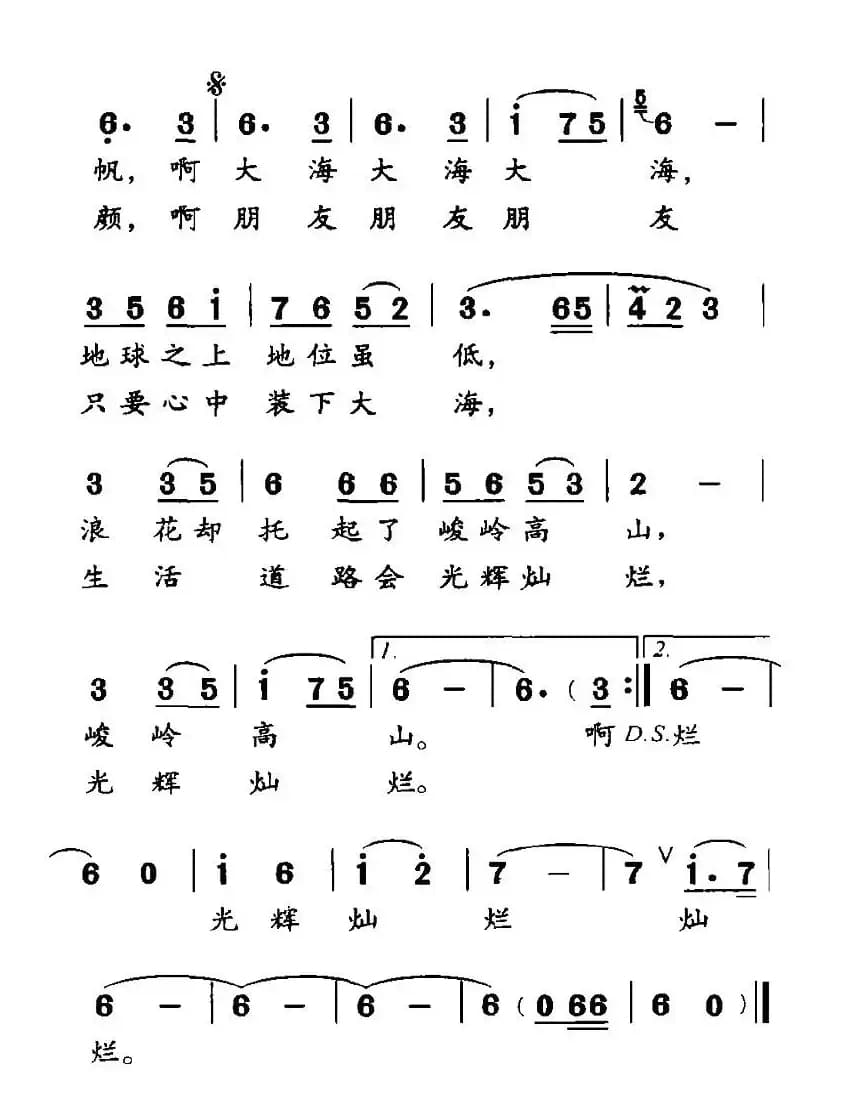 6. 3 | 6. 3 | 6. 3 | i 7 5 | 5 6 — |
帆，啊 大 海 大 海 大 海，
颜，啊 朋 友 朋 友 朋 友
3 5 6 i | 7 6 5 2 | 3. 6 5 | 4 2 3 |
地 球 之 上 地 位 虽 低，
只 要 心 中 装 下 大 海，
3 3 5 | 6 6 6 | 5 6 5 3 | 2 — |
浪 花 却 托 起 了 峻 岭 高 山，
生 活 道 路 会 光 辉 灿 烂，
1. 2.
3 3 5 | i 7 5 | 6 — | 6. ( 3 :‖ 6 — |
峻 岭 高 山。 啊 D.S. 烂
光 辉 灿 烂。
6 0 | i 6 | i 2 | 7 — | 7 V i. 7 |
光 辉 灿 烂 灿
6 — | 6 — | 6 — | 6 ( 0 6 6 | 6 0 ) ‖
烂。